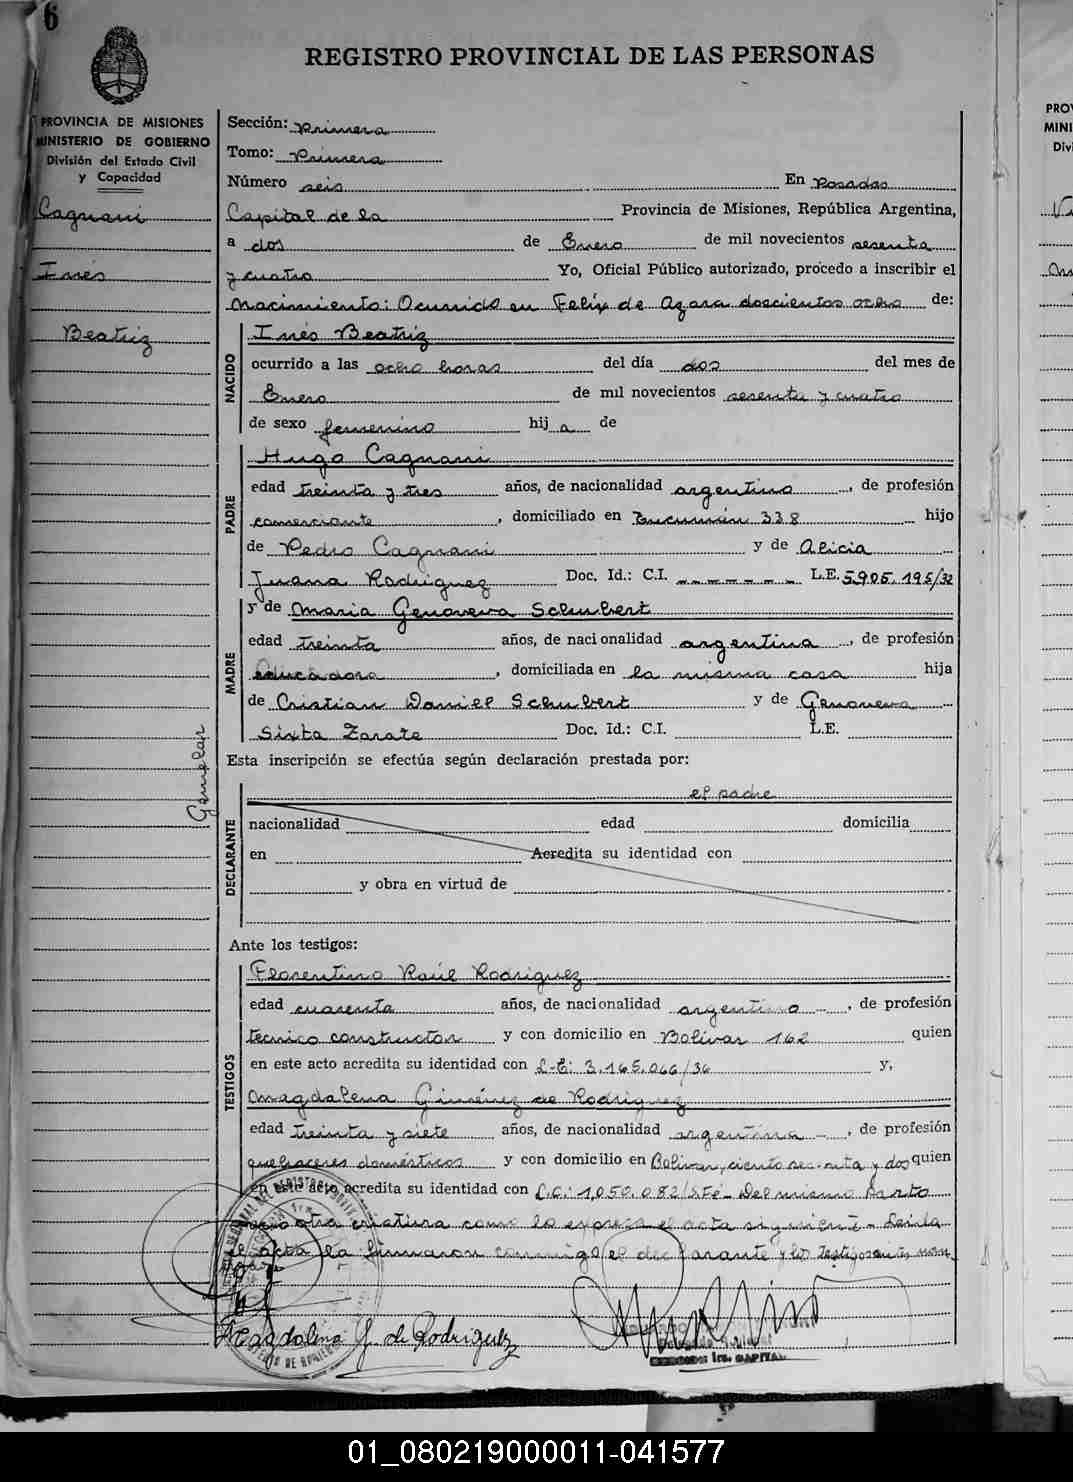 6
REGISTRO PROVINCIAL DE LAS PERSONAS
PROVINCIA DE MISIONES
MINISTERIO DE GOBIERNO
División del Estado Civil
y Capacidad
Cagnani
Inés
Beatriz
Gemelar
Sección: Primera
Tomo: Primera
Número seis En Posadas
Capital de la Provincia de Misiones, República Argentina,
a dos de Enero de mil novecientos sesenta
y cuatro Yo, Oficial Público autorizado, procedo a inscribir el
Nacimiento: Ocurrido en Felix de Azara doscientos ocho de:
NACIDO
Inés Beatriz
ocurrido a las ocho horas del día dos del mes de
Enero de mil novecientos sesenta y cuatro
de sexo femenino hij a de
PADRE
Hugo Cagnani
edad treinta y tres años, de nacionalidad argentino, de profesión
comerciante, domiciliado en Tucumán 338 hijo
de Pedro Cagnani y de Alicia
Juana Rodriguez Doc. Id.: C.I. - - - - - - - L.E. 5.905.195/32
MADRE
y de Maria Genoveva Schubert
edad treinta años, de nacionalidad argentina, de profesión
educadora, domiciliada en la misma casa hija
de Cristian Daniel Schubert y de Genoveva
Sixta Zarate Doc. Id.: C.I. L.E.
Esta inscripción se efectúa según declaración prestada por:
DECLARANTE
el padre
nacionalidad edad domicilia
en Acredita su identidad con
y obra en virtud de
Ante los testigos:
TESTIGOS
Florentino Raúl Rodriguez
edad cuarenta años, de nacionalidad argentino, de profesión
tecnico constructor y con domicilio en Bolivar 162 quien
en este acto acredita su identidad con L-E: 3.165.066/36 y,
Magdalena Giménez de Rodriguez
edad treinta y siete años, de nacionalidad argentina, de profesión
quehaceres domésticos y con domicilio en Bolivar, ciento sesenta y dos quien
en este acto acredita su identidad con L.C: 1.050.082/ Del mismo parto
otra criatura como lo expresa el acta siguiente - Leida
el acta la firmaron conmigo el declarante y los testigos
Magdalena G. de Rodriguez
CAPITAL
PRO
MINI
Divi
01_080219000011-041577